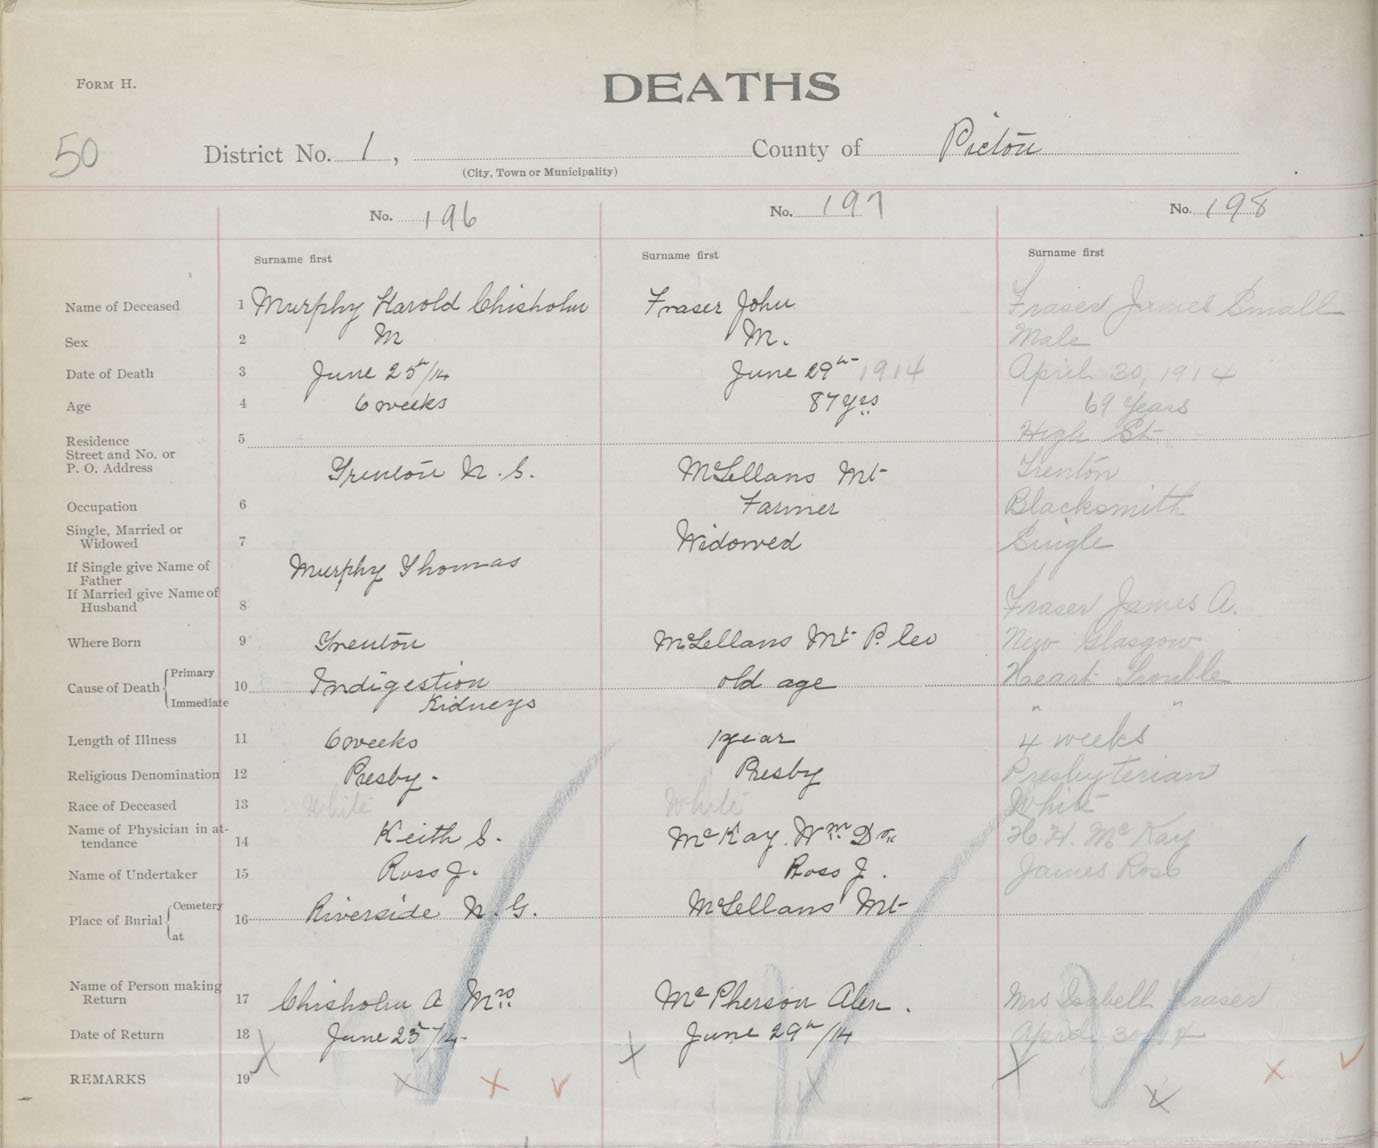 FORM H.
DEATHS
50
District No. 1, County of Pictou
(City, Town or Municipality)
No. 196 No. 197 No. 198
Surname first Surname first Surname first
Name of Deceased 1 Murphy Harold Chisholm Fraser John Fraser James Small
Sex 2 M M. Male
Date of Death 3 June 25th/14 June 29th 1914 April 30, 1914
Age 4 6 weeks 87 yrs 69 Years
Residence 5 High St
Street and No. or
P. O. Address Trenton N.S. McLellans Mt Trenton
Occupation 6 Farmer Blacksmith
Single, Married or
Widowed 7 Widowed Single
If Single give Name of
Father Murphy Thomas
If Married give Name of
Husband 8 Fraser James A.
Where Born 9 Trenton McLellans Mt P. Co New Glasgow
Cause of Death Primary 10 Indigestion old age Heart Trouble
Immediate Kidneys " "
Length of Illness 11 6 weeks 1 year 4 weeks
Religious Denomination 12 Presby. Presby Presbyterian
Race of Deceased 13 White White White
Name of Physician in at-
tendance 14 Keith S. McKay. Wm Dr. H. H. McKay
Name of Undertaker 15 Ross J. Ross J. James Ross
Place of Burial Cemetery 16 Riverside N.G. McLellans Mt
at
Name of Person making
Return 17 Chisholm A Mrs McPherson Alex. Mrs Isabell Fraser
Date of Return 18 June 25/14. June 29th/14 April 30/14
REMARKS 19